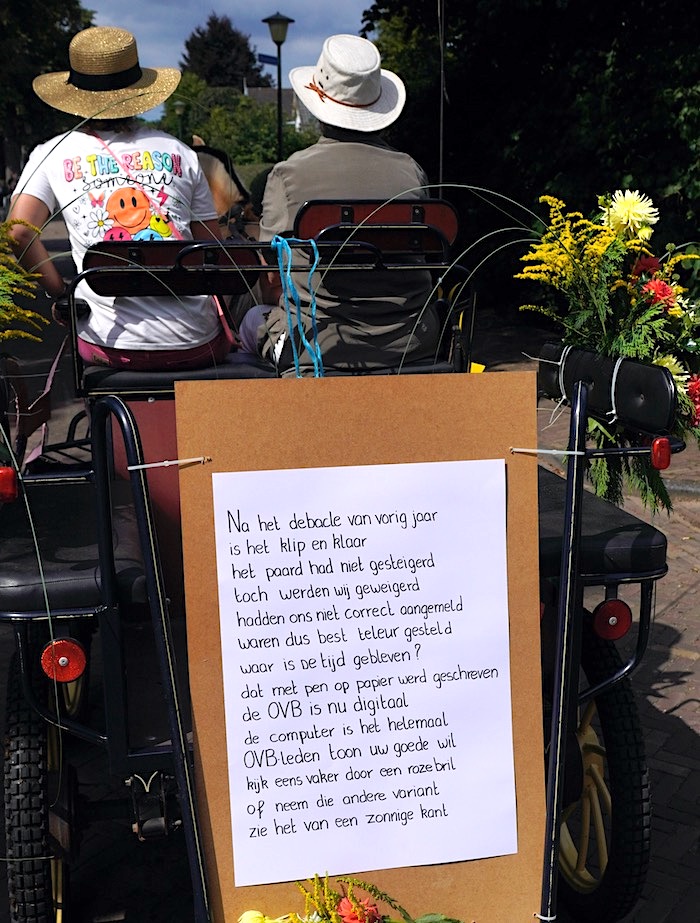 BE THE REASON
someone
Na het debacle van vorig jaar
is het klip en klaar
het paard had niet gesteigerd
toch werden wij geweigerd
hadden ons niet correct aangemeld
waren dus best teleur gesteld
waar is De tijd gebleven?
dat met pen op papier werd geschreven
de OVB is nu digitaal
de computer is het helemaal
OVB-leden toon uw goede wil
kijk eens vaker door een roze bril
of neem die andere variant
zie het van een zonnige kant